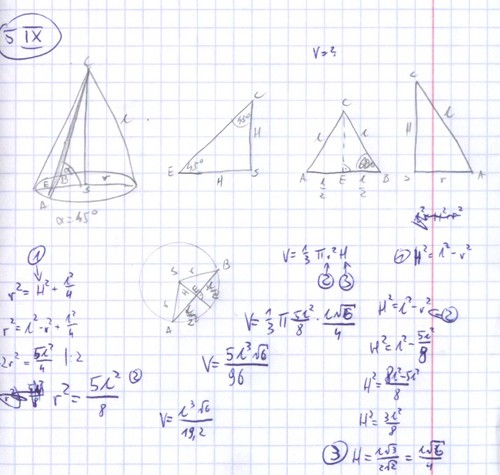 5 IX
V=?
C
l
E
B
S
r
A
α
α=45°
C
45°
H
E
45°
H
S
C
l
l
A
l/2
E
l/2
B
C
H
l
S
r
A
①
r²=H²+l²/4
r²=l²-r²+l²/4
2r²=5l²/4 |:2
r²=5l²/8 ②
S
r
B
H
E
r
l/2
l/2
A
V=1/3 πr²H
② ③
V=1/3 π 5l²/8 · l√6/4
V=5l³√6/96
V=l³√6/19,2
① H²=l²-r²
H²=l²-r² ②
H²=l²-5l²/8
H²=8l²-5l²/8
H²=3l²/8
③ H=l√3/2√2=l√6/4